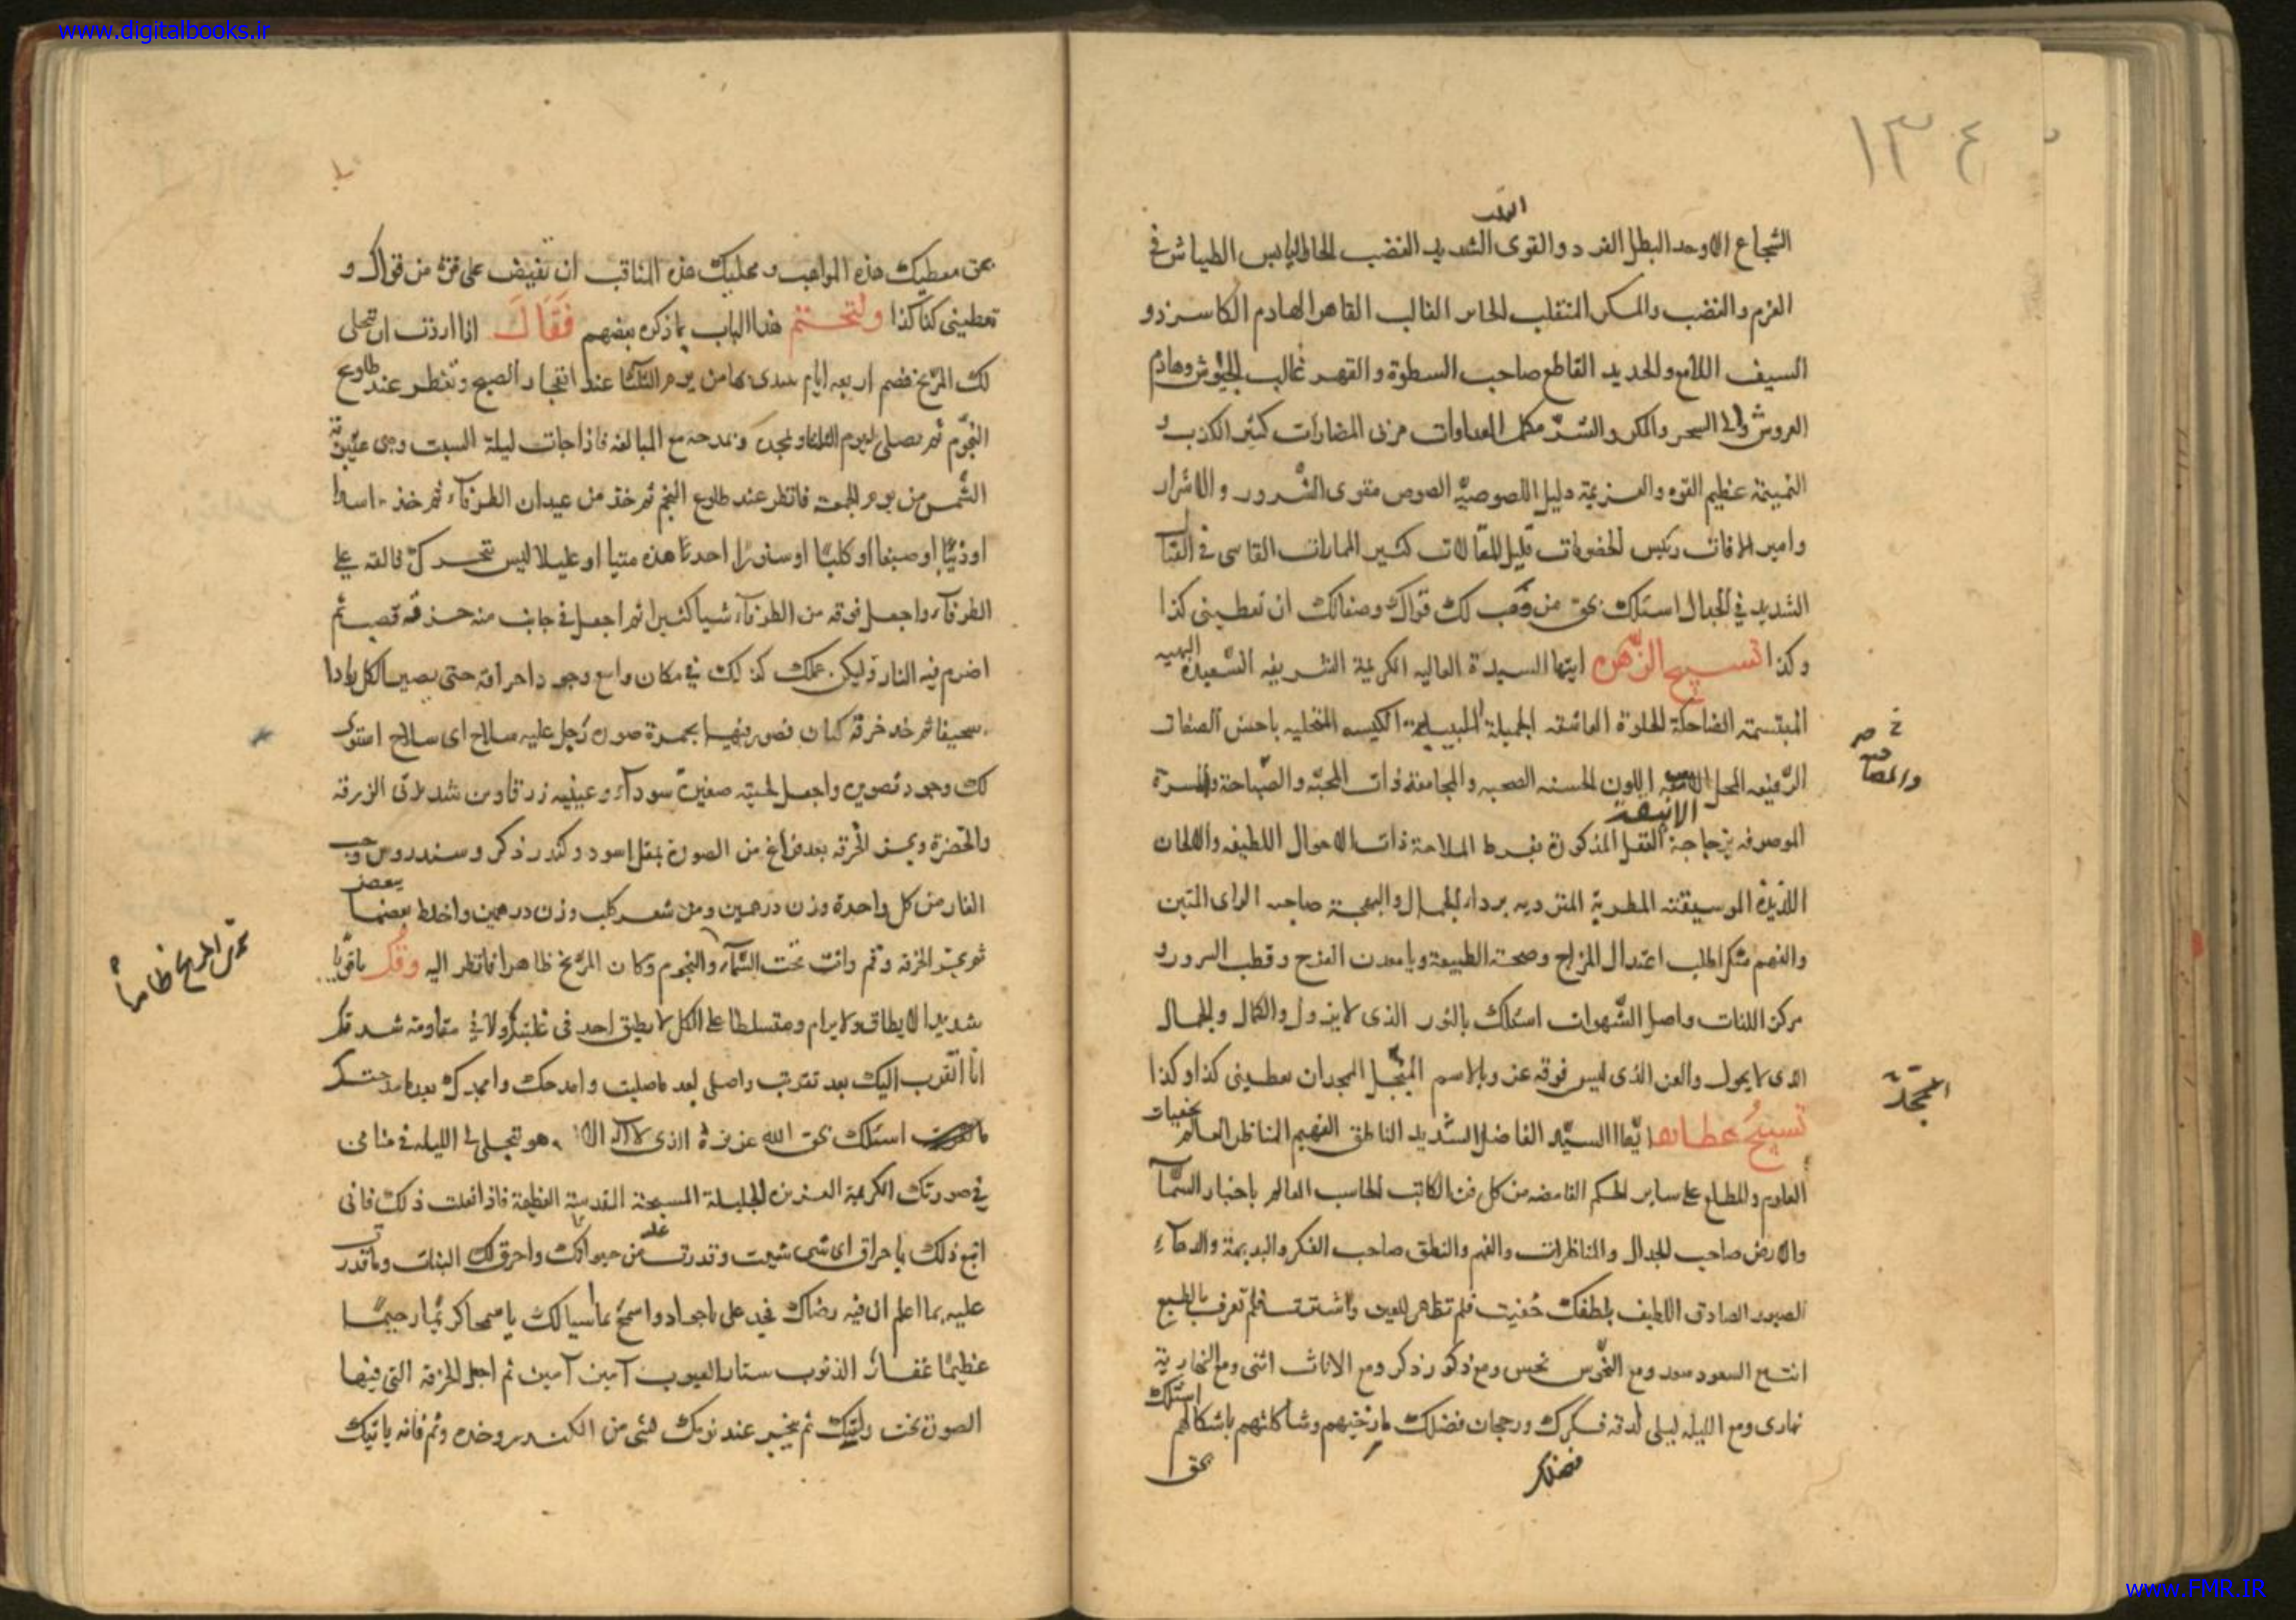 www.digitalbooks.ir
١٣٤
الشجاع الاوحد البطل الفرد والقوى الشديد الغضب الحار اليابس الطياش فى
العزم والغضب والمكر المتقلب الحاد الغالب القاهر الهادم الكاسر ذو
السيف اللامع والحديد القاطع صاحب السطوة والقهر غالب الجيوش وهادم
العروش والى السحر والمكر والشر مكمل العداوات مربى المضارات كثير الكذب و
النميمة عظيم القوه والعزيمة دليل اللصوصية اللصوص مقوى الشرور والاشرار
وامير الافات رئيس الخصومات قليل المقالات كثير الممارات القاسى فى القتال
الشديد فى الجدال اسئلك بحق من وهب لك قواك وصفاتك ان تعطينى كذا
وكذا تسبيح الزهره ايتها السيدة العاليه الكريمة الشريفه السعيدة البهيه
المبتسمة الضاحكة الحلوة العاشقه الجميلة الكيسه المتحليه باحسن الصفات
الرفيعه المحل اللون الحسنه الصحبه والمجامعة ذات المحبة والصباحة والمسرة
الموصوفه بزجاجة العقل المذكورة بفرط الملاحة ذات الاحوال اللطيفه والالحان
اللذيذة الموسيقيه المطربة المترديه برداء الجمال والبهجة صاحبه الراى المتين
والفهم اطلب اعتدال المزاج وصحة الطبيعة ويا معدن الفرح وقطب السرور و
مركز اللذات واصل الشهوات اسئلك بالنور الذى لا يزول والكمال والجمال
الذى لا يحول والعز الذى ليس فوقه عز وبالاسم المبجل الممجد ان تعطينى كذا وكذا
الممجد
تسبيح عطارد ايها السيد الفاضل الشديد الناطق الفهيم المناظر العالم بخفيات
العلوم والمطلع على ساير الحكم الغامضه من كل فن الكاتب الحاسب العالم باخبار السماء
والارض صاحب الجدال والمناظرات والفهم والنطق صاحب الفكر والبديهة والدهاء
الصبور الصادق اللطيف بلطفك خفيت فلم تظهر للعين واستترت فلم تعرف بالطبع
انت مع السعود سعد ومع النحوس نحس ومع ذكور ذكر ومع الاناث انثى ومع النهارية
نهارى ومع الليله ليلى لدقة فكرك ورجحان فضلك مازجتهم وشاكلتهم باشكالهم اسئلك
بحق
بحق معطيك هذه المواهب ومحليك هذه المناقب ان تفيض على قوة من قواك و
تعطينى كذا كذا ولنختتم هذا الباب بما ذكره بعضهم فقال اذا اردت ان تتجلى
لك المريخ فصم اربعه ايام مبدئها من يوم الثلثا عند انفجار الصبح وتفطر عند طلوع
النجوم ثم تصلى ليوم الثلثا وتمجده وتمدحه مع المبالغه فاذا جات ليلة السبت وهى عشية
الشمس من يوم الجمعة فانظر عند طلوع النجم ثم خذ من عيدان الطرفاء ثم خذ اسدا
او ذئبا او ضبعا او كلبا او سنورا احد هذه ميتا او عليلا ليس يتحرك فالقه على
الطرفاء واجعل فوقه من الطرفاء شيا كثيرا ثم اجعل فى جانب منه حزمة قصب ثم
اضرم فيه النار وليكن عملك كذلك فى مكان واسع وجود احراقه حتى يصير الكل رمادا
سحيقا ثم خذ خرقة كتان فصور فيها بحمرة صورة رجل عليه سلاح اى سلاح استوى
لك وجود تصويره واجعل لحيته صغيرة سوداء وعينيه زرقاوين شديدتى الزرقه
والخضرة وبخر الخرقه بعد فراغ من الصورة بمقل اسود وكندر ذكر وسندروس وحب
الغار من كل واحدة وزن درهمين ومن شعر كلب وزن درهمين واخلط بعضها
ثم بخر الخرقه وقم وانت تحت السماء والنجوم وكان المريخ ظاهرا فانظر اليه وقل يا قويا
شديدا لا يطاق ولا يرام ومتسلطا على الكل لا يطيق احد فى غلبتك ولا فى مقاومة شدتك
انا اتقرب اليك بعد تقربت واصلى بعد ما صليت وامدحك وامجدك بعد ما مدحتك
اسئلك بحق الله عزيزة الذى لا اله الا هو تتجلى لى الليله فى منامى
فى صورتك الكريمة العزيزة الجليلة المسبحة المقدسة العظيمة فاذا فعلت ذلك فانى
اتبع ذلك باحراق اى شى شيت وقدرت عليه من حيوانك واحرق لك النبات وما قدرت
عليه بما اعلم ان فيه رضاك فجد على يا جواد واسمح بما سيالك يا سمحا كريما رحيما
عظيما غفار الذنوب ستار العيوب آمين آمين ثم اجعل الخرقة التى فيها
الصورة تحت راسك ثم بخر عند نومك بشى من الكندر وحده ونم فانه ياتيك
www.FMR.IR